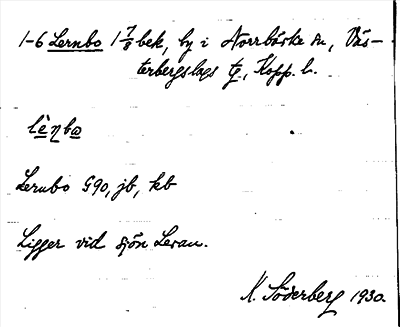 1-6 Lernbo 1 7/8 bek, by i Norrbärke sn, Väs-
terbergslags tg, Kopp. l.
lèṇbo
Lernbo G90, jb, kb
Ligger vid sjön Leran.
K. Söderberg 1930.